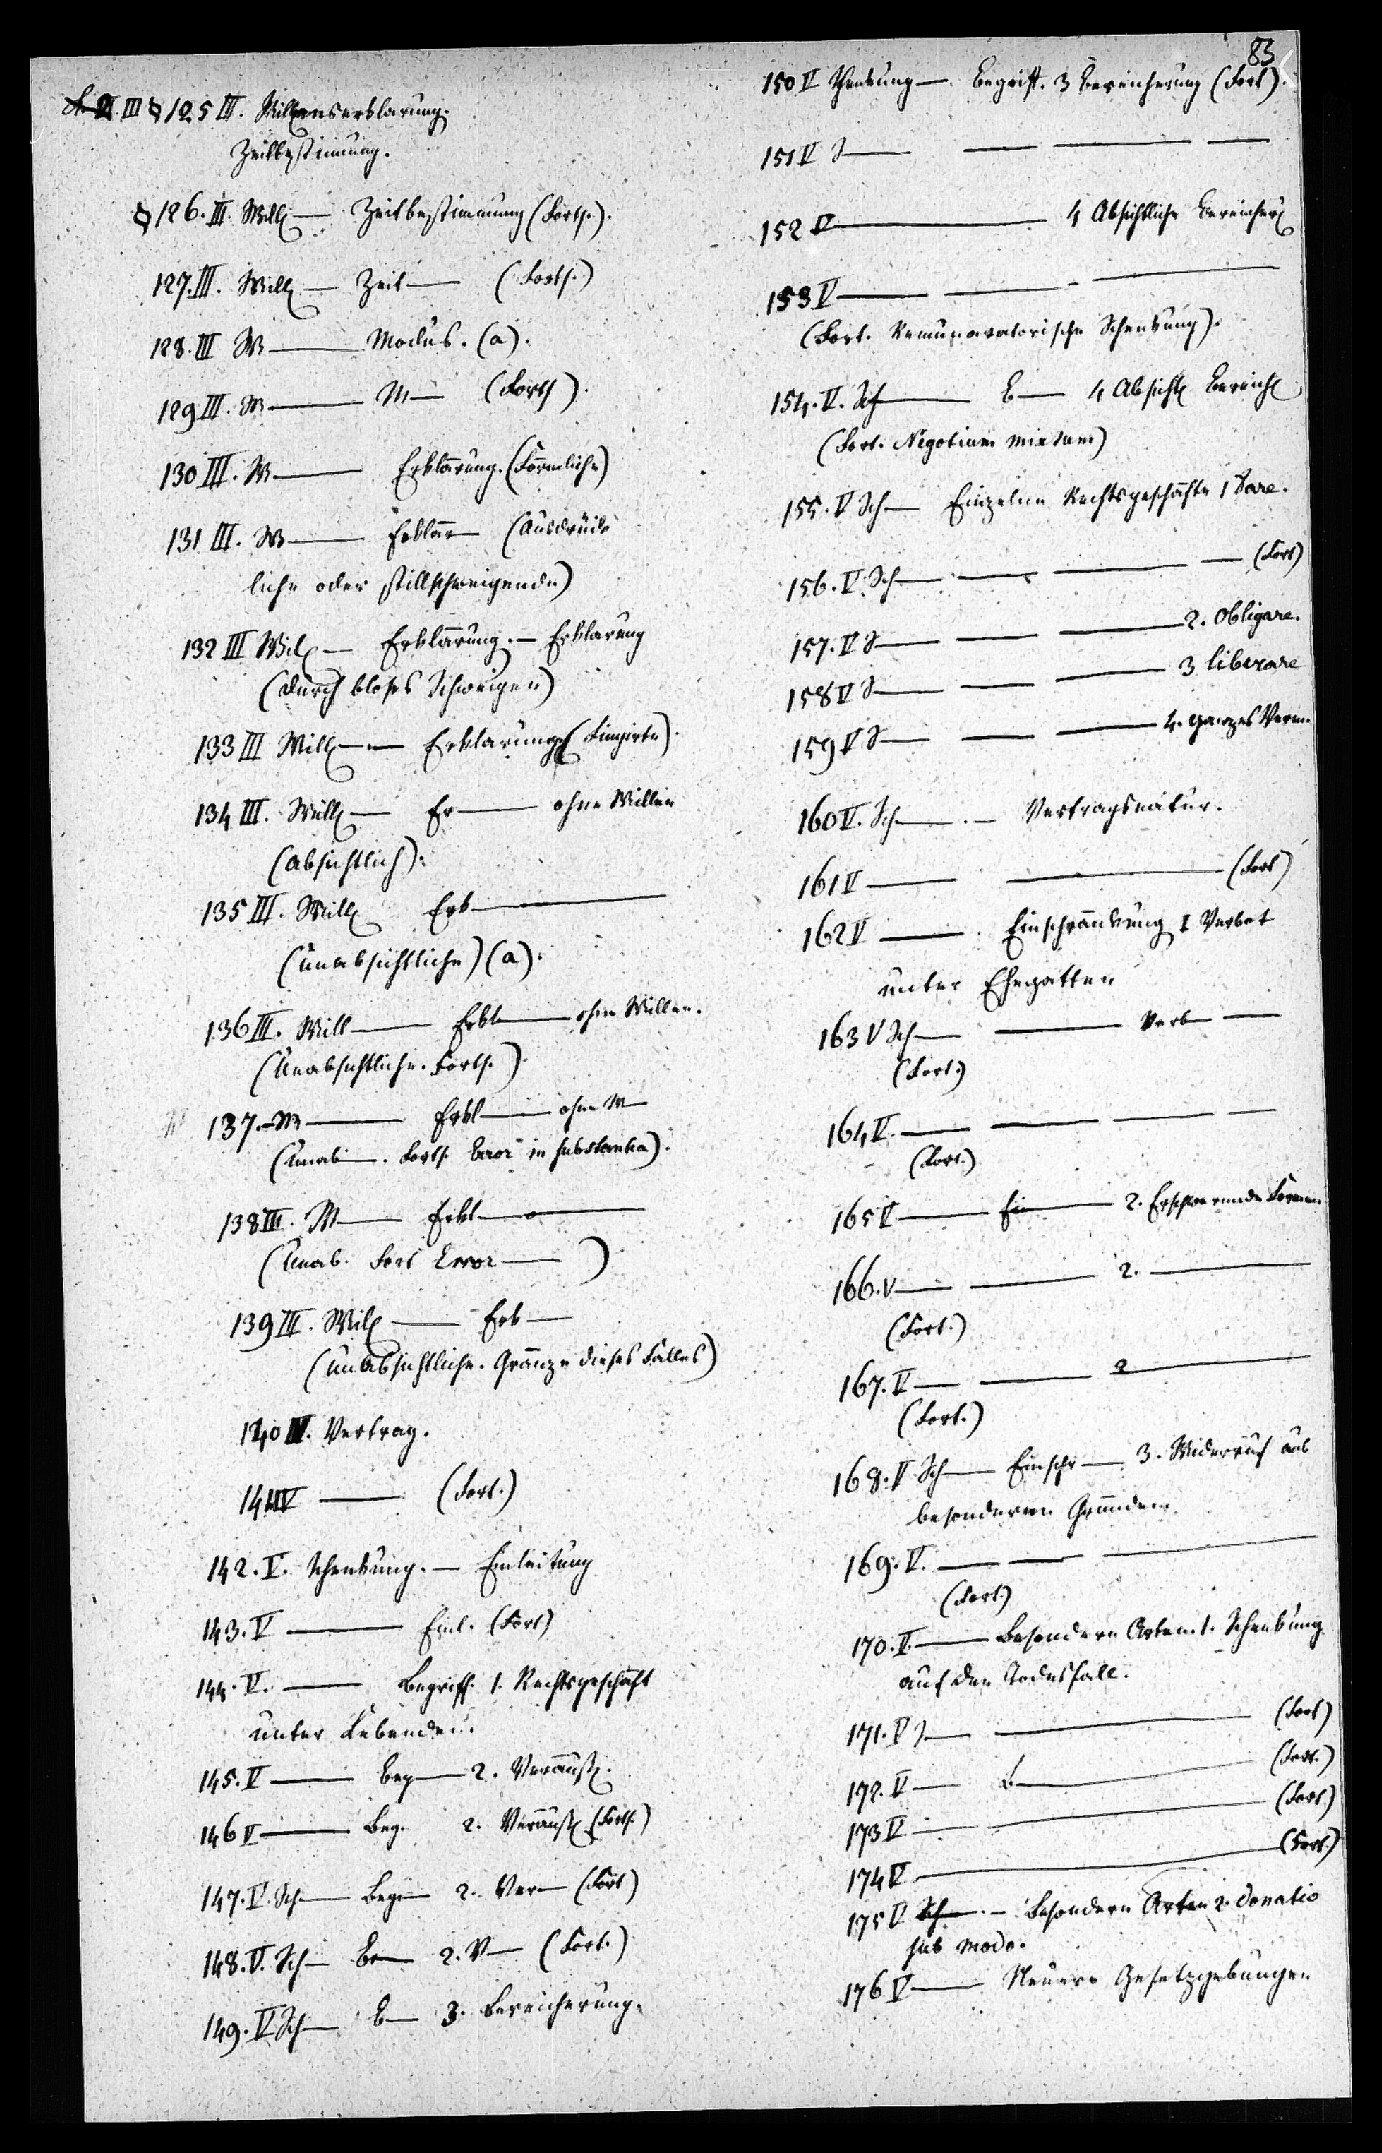 83
§125 III. Willenserklarung.
Zeitbestimmung.
§126. III. Will — Zeitbestimmung (Forts.).
127. III. Will — Zeit — (Forts.)
128. III W — Modus. (a).
129 III. W — M — (Forts).
130 III. W — Erklärung. (Förmliche)
131 III. W — Erklär — (Ausdrück
liche oder stillschweigende)
132 III Wil — Erklärung. — Erklarung
(durch bloßes Schweigen)
133 III Will — — Erklarung (Fingirte).
134 III. Will — Er — ohne Willen
(absichtlich).
135 III. Will Erk —
(unabsichtliche) (a).
136 III. Will — Erkl — ohne Willen.
(Unabsichtliche. Forts.)
137. — W — Erkl — ohne W —
(Unab — . Forts. Error in substantia).
138 III. W — Erkl —
(Unab. Fort Error — )
139 III. Wil — Erk —
(unabsichtliche. Gränze dieses Falles)
140 IV. Vertrag.
141 IV — (Fort.)
142. V. Schenkung. — Einleitung
143. V — Einl. (Fort)
144. V. — Begriff. 1. Rechtsgeschäft
unter Lebenden.
145. V — Beg — 2. Veräuß.
146 V — Beg. 2. Veräuß (Forts.)
147. V. Sch — Beg — 2. Ver — (Fort)
148. V. Sch — Be — 2. V — (Fort.)
149. V Sch — B — 3. Bereicherung.
150 V Schenkung — Begriff. 3 Bereicherung (Fort).
151 V S — — — —
152 V — 4 Absichtliche Bereicher
153 V — — —
(Fort. Remuneratorische Schenkung).
154. V. Sch — B — 4 Absicht Bereich
(Fort. Negotium mixtum)
155. V Sch — Einzelne Rechtsgeschäfte 1 Dare.
156. V. Sch — — — — (Fort)
157. V S — — — 2. Obligare.
158 V S — — — 3 liberare
159 V S — — — 4. ganzes Verm
160 V. Sch — . — Vertragsnatur.
161 V — — (Fort)
162 V — . Einschränkung 1 Verbot
unter Ehegatten
163 V Sch — — Verb — —
(Fort.)
164 V. — — — —
(Fort.)
165 V — Ein — 2. Erschwerende Formen
166. V — — 2. —
(Fort.)
167. V — — 2 —
(Fort.)
168. V Sch — Einschr — 3. Widerruf aus
besonderen Gründen.
169. V. — — —
(Fort)
170. V. — Besondere Arten. 1. Schenkung
auf den Todesfall.
171. V S — — (Fort)
172. V — B — (Fort.)
173 V — — (Fort)
174 V — (Fort.)
175 V Sch — . — Besondere Arten 2. Donatio
sub modo.
176 V — Neuere Gesetzgebungen